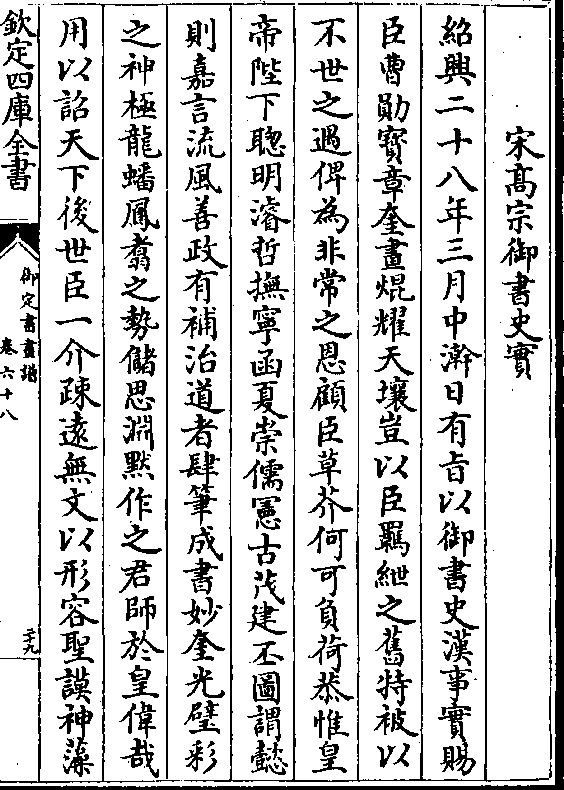 宋髙宗御書史實
紹興二十八年三月中澣日有旨以御書史漢事實賜
臣曹勛寳章奎畫焜耀天壤豈以臣羈紲之舊特被以
不世之遇俾為非常之恩顧臣草芥何可負荷恭惟皇
帝陛下聰明濬哲撫寧函夏崇儒憲古茂建丕圖謂懿
則嘉言流風善政有補治道者肆筆成書妙奎光璧彩
之神極龍蟠鳳翥之勢儲思淵黙作之君師於皇偉哉
用以詔天下後世臣一介疎逺無文以形容聖謨神藻
欽定四庫全書
御定書畫譜
卷六十八
二十九